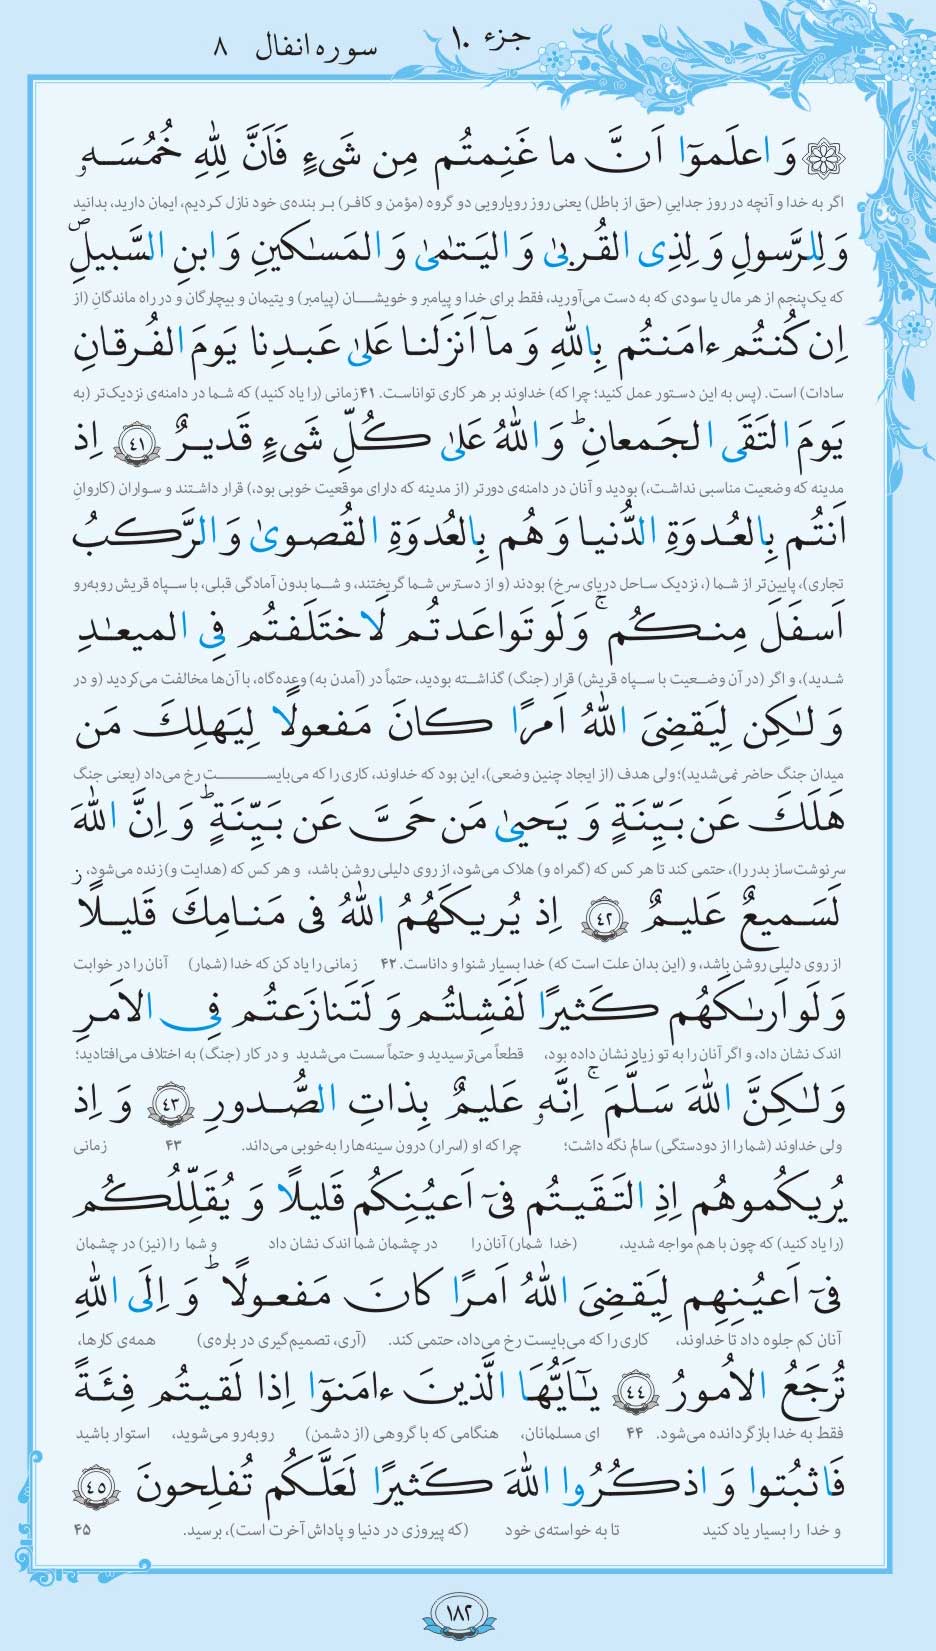 جزء ۱۰
سوره انفال ۸
وَ اعلَموٓا اَنَّ ما غَنِمتُم مِن شَیءٍ فَاَنَّ لِلّٰهِ خُمُسَهٗ
اگر به خدا و آنچه در روز جداییِ (حق از باطل) یعنی روز رویارویی دو گروه (مؤمن و کافر) بر بنده‌ی خود نازل کردیم، ایمان دارید، بدانید
وَ لِلرَّسولِ وَ لِذِی القُربیٰ وَ الیَتٰمیٰ وَ المَسٰکینِ وَ ابنِ السَّبیلِۙ
که یک‌پنجم از هر مال یا سودی که به دست می‌آورید، فقط برای خدا و پیامبر و خویشان (پیامبر) و یتیمان و بیچارگان و در راه ماندگانِ (از
اِن کُنتُم ءامَنتُم بِاللّٰهِ وَ مآ اَنزَلنا عَلیٰ عَبدِنا یَومَ الفُرقانِ
سادات) است. (پس به این دستور عمل کنید؛ چرا که) خداوند بر هر کاری تواناست. ۴۱ زمانی (را یاد کنید) که شما در دامنه‌ی نزدیک‌تر (به
یَومَ التَقَی الجَمعانِؕ وَ اللّٰهُ عَلیٰ کُلِّ شَیءٍ قَدیرٌ ﴿٤١﴾ اِذ
مدینه که وضعیت مناسبی نداشت،) بودید و آنان در دامنه‌ی دورتر (از مدینه که دارای موقعیت خوبی بود،) قرار داشتند و سواران (کاروانِ
اَنتُم بِالعُدوَةِ الدُّنیا وَ هُم بِالعُدوَةِ القُصویٰ وَ الرَّکبُ
تجاری)، پایین‌تر از شما (، نزدیک ساحل دریای سرخ) بودند (و از دسترس شما گریختند، و شما بدون آمادگی قبلی، با سپاه قریش روبه‌رو
اَسفَلَ مِنکُمۚ وَ لَو تَواعَدتُم لَاختَلَفتُم فِی المیعٰدِ
شدید)، و اگر (در آن وضعیت با سپاه قریش) قرار (جنگ) گذاشته بودید، حتماً در (آمدن به) وعده‌گاه، با آن‌ها مخالفت می‌کردید (و در
وَ لٰکِن لِیَقضِیَ اللّٰهُ اَمرًا کانَ مَفعولًا لِیَهلِکَ مَن
میدان جنگ حاضر نمی‌شدید)؛ ولی هدف (از ایجاد چنین وضعی)، این بود که خداوند، کاری را که می‌بایست رخ می‌داد (یعنی جنگ
هَلَکَ عَن بَیِّنَةٍ وَ یَحییٰ مَن حَیَّ عَن بَیِّنَةٍؕ وَ اِنَّ اللّٰهَ
سرنوشت‌ساز بدر را)، حتمی کند تا هر کس که (گمراه و) هلاک می‌شود، از روی دلیلی روشن باشد، و هر کس که (هدایت و) زنده می‌شود،
لَسَمیعٌ عَلیمٌ ﴿٤٢﴾ اِذ یُریکَهُمُ اللّٰهُ فی مَنامِکَ قَلیلًاؗ
از روی دلیلی روشن باشد، و (این بدان علت است که) خدا بسیار شنوا و داناست. ۴۲ زمانی را یاد کن که خدا (شمار) آنان را در خوابت
وَ لَو اَرٰىکَهُم کَثیرًا لَفَشِلتُم وَ لَتَنازَعتُم فِی الاَمرِ
اندک نشان داد، و اگر آنان را به تو زیاد نشان داده بود، قطعاً می‌ترسیدید و حتماً سست می‌شدید و در کار (جنگ) به اختلاف می‌افتادید؛
وَ لٰکِنَّ اللّٰهَ سَلَّمَۚ اِنَّهٗ عَلیمٌ بِذاتِ الصُّدورِ ﴿٤٣﴾ وَ اِذ
ولی خداوند (شما را از دودستگی) سالم نگه داشت؛ چرا که او (اسرار) درون سینه‌ها را به‌خوبی می‌داند. ۴۳ زمانی
یُریکُموهُم اِذِ التَقَیتُم فیٓ اَعیُنِکُم قَلیلًا وَ یُقَلِّلُکُم
(را یاد کنید) که چون با هم مواجه شدید، (خدا شمار) آنان را در چشمان شما اندک نشان داد و شما را (نیز) در چشمان
فیٓ اَعیُنِهِم لِیَقضِیَ اللّٰهُ اَمرًا کانَ مَفعولًاؕ وَ اِلَی اللّٰهِ
آنان کم جلوه داد تا خداوند، کاری را که می‌بایست رخ می‌داد، حتمی کند. (آری، تصمیم‌گیری در باره‌ی) همه‌ی کارها،
تُرجَعُ الاُمورُ ﴿٤٤﴾ یٰٓاَیُّهَا الَّذینَ ءامَنوٓا اِذا لَقیتُم فِئَةً
فقط به خدا بازگردانده می‌شود. ۴۴ ای مسلمانان، هنگامی که با گروهی (از دشمن) روبه‌رو می‌شوید، استوار باشید
فَاثبُتوا وَ اذکُرُوا اللّٰهَ کَثیرًا لَعَلَّکُم تُفلِحونَ ﴿٤٥﴾
و خدا را بسیار یاد کنید تا به خواسته‌ی خود (که پیروزی در دنیا و پاداش آخرت است)، برسید. ۴۵
۱۸۲